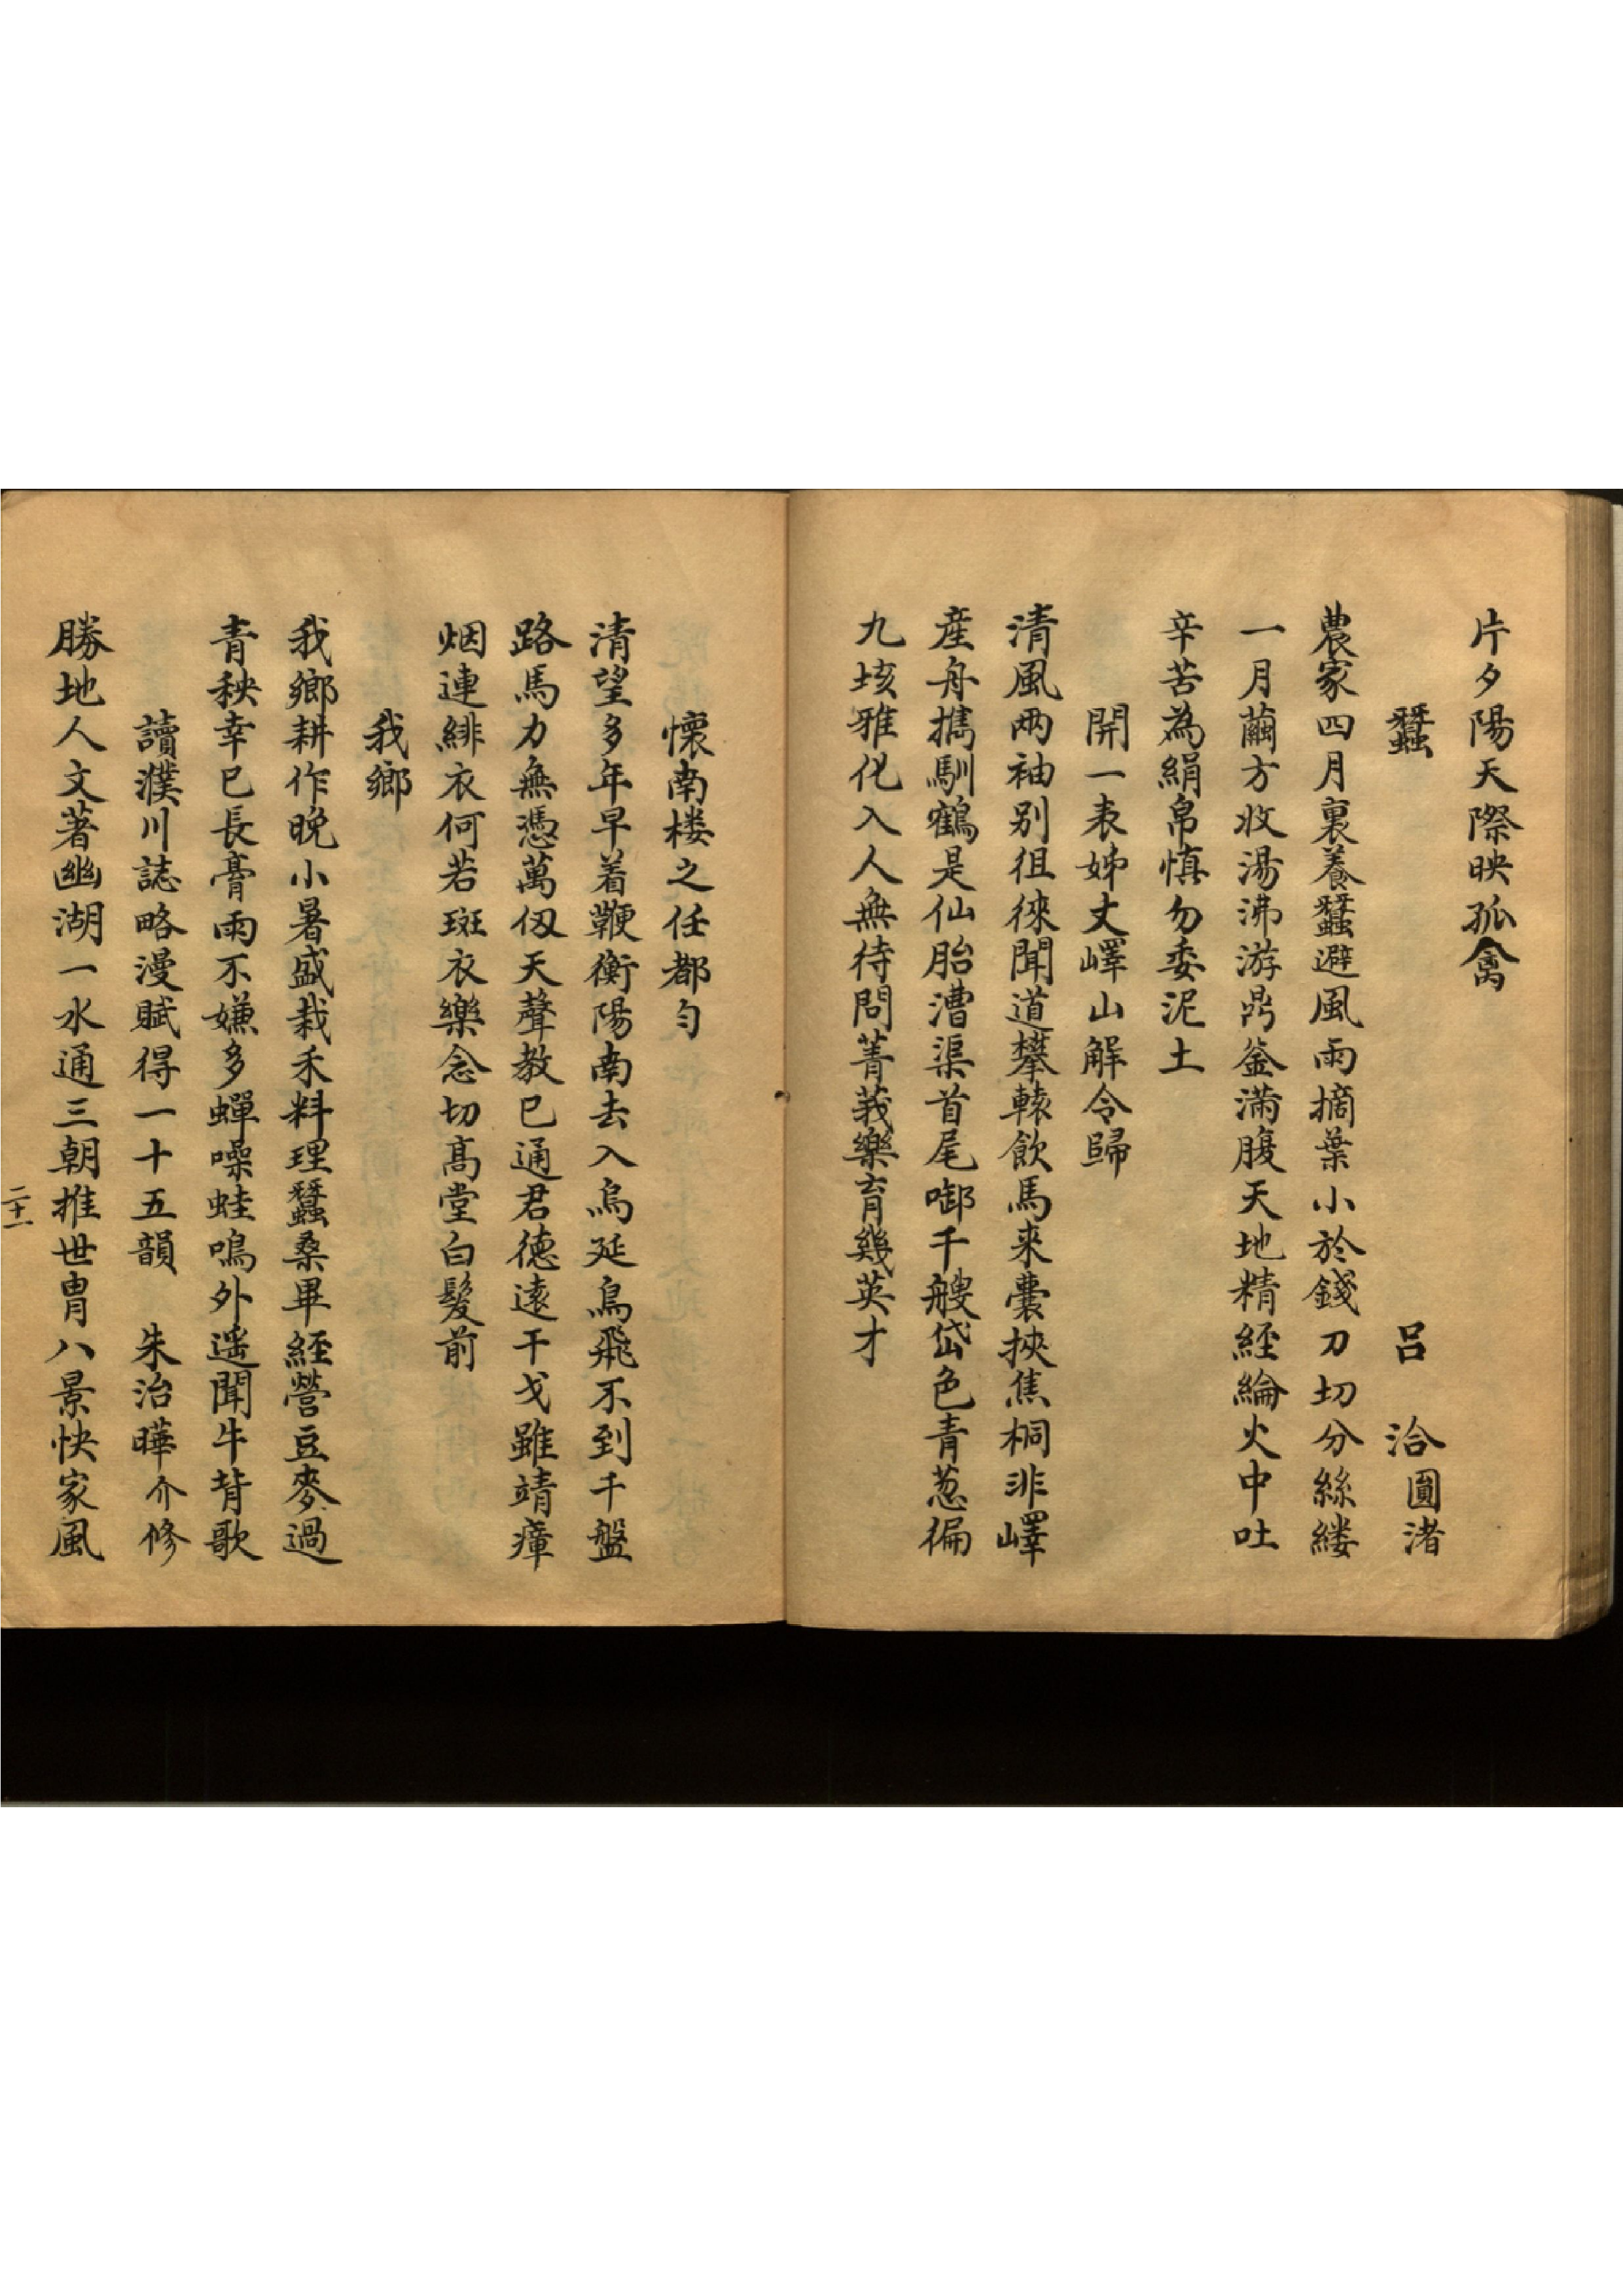 片夕陽天際映孤禽
蠶　呂洽圓渚
農家四月裏養蠶避風雨摘葉小於錢刀切分絲縷
一月繭方收湯沸游鼎釜滿腹天地精經綸火中吐
辛苦為絹帛慎勿委泥土
開一表姊丈嶧山解令歸
清風兩袖别徂徠聞道攀轅飲馬来囊挾焦桐非嶧
産舟携馴鶴是仙胎漕渠首尾啣千艘岱色青葱徧
九垓雅化入人無待問菁莪樂育幾英才
懷南楼之任都勻
清望多年早着鞭衡陽南去入烏延鳥飛不到千盤
路馬力無憑萬仭天聲教已通君德遠干戈雖靖瘴
烟連緋衣何若斑衣樂念切髙堂白髮前
我鄉
我鄉耕作晚小暑盛栽禾料理蠶桑畢經營豆麥過
青秧幸已長膏雨不嫌多蟬噪蛙鳴外遥聞牛背歌
讀濮川誌略漫賦得一十五韻　朱治曄介修
勝地人文著幽湖一水通三朝推世胄八景快家風
二十一